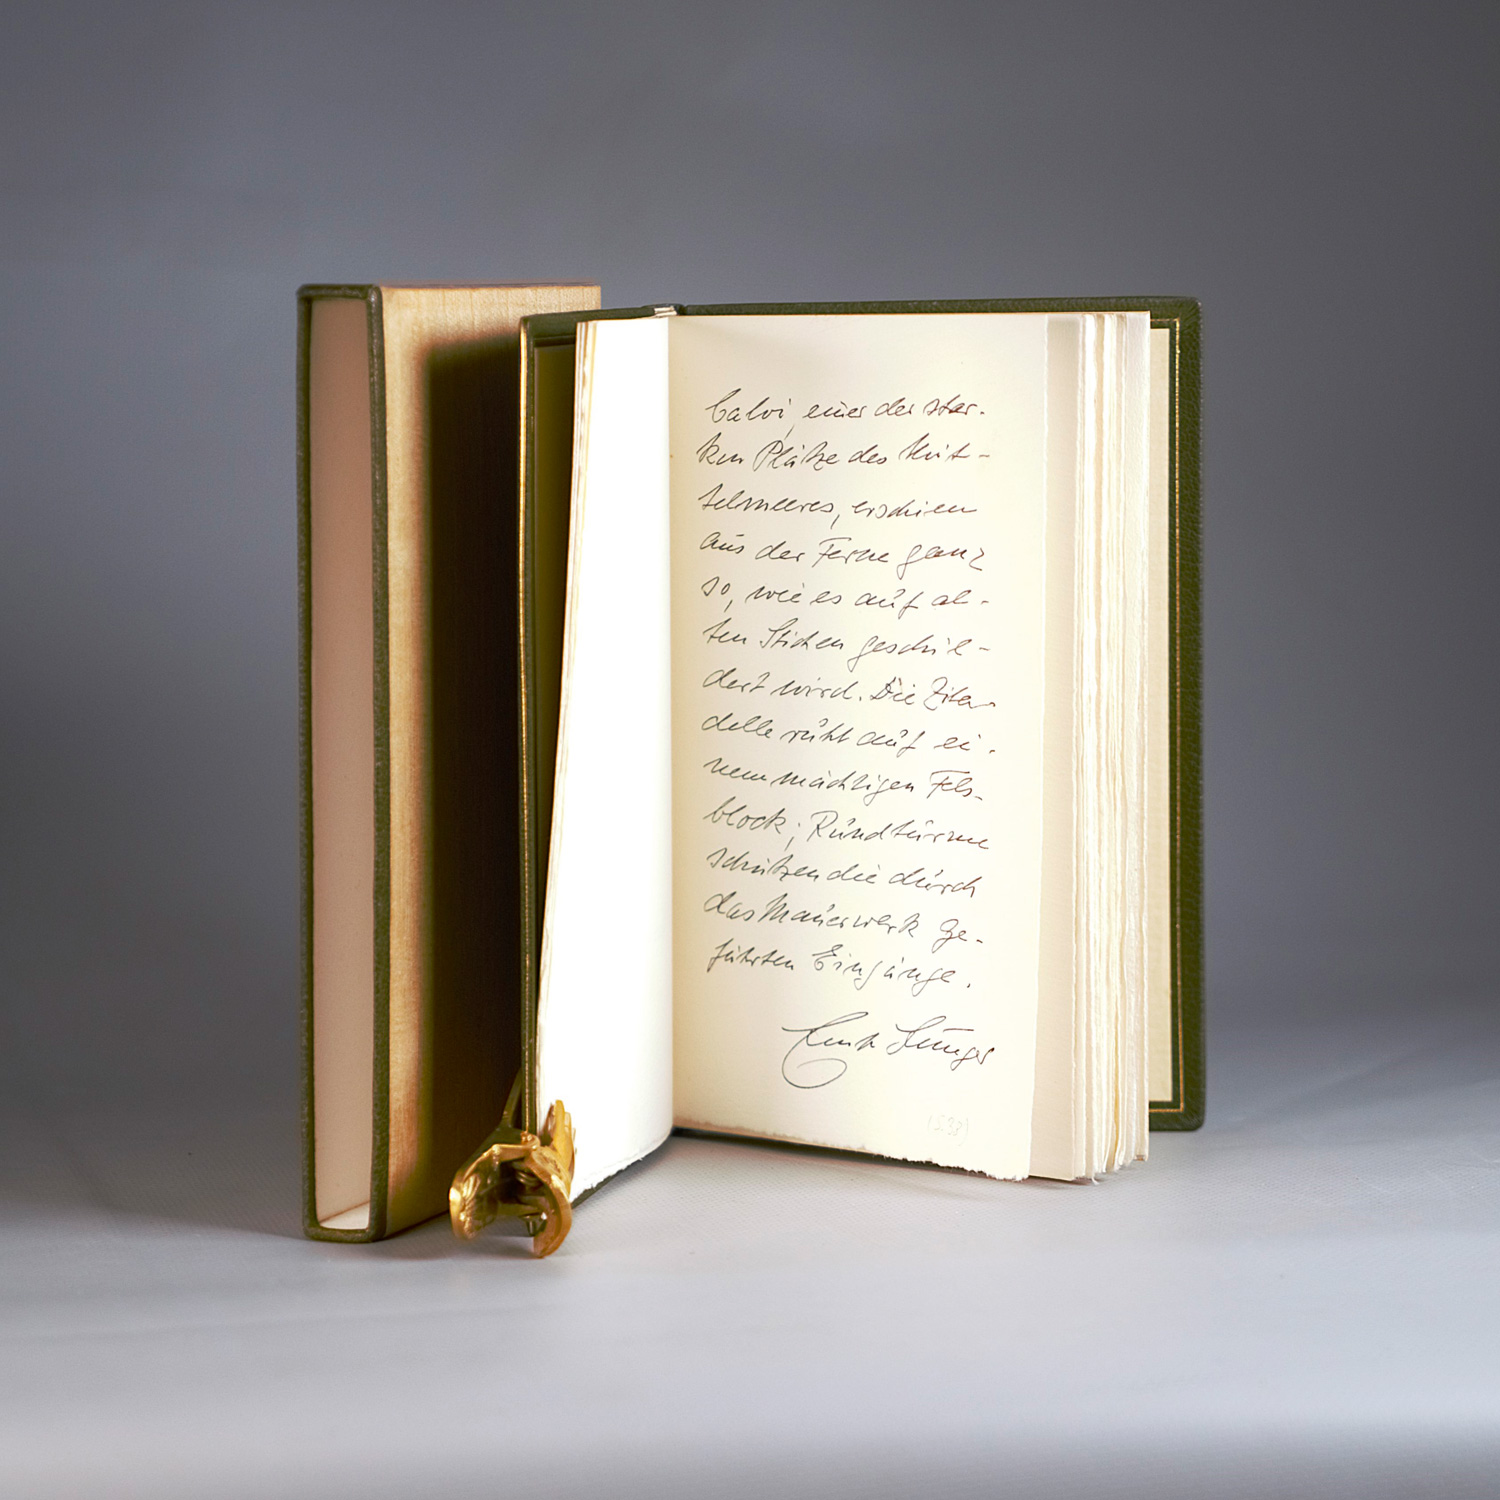 Calvi, einer der star-
ken Plätze des Mit-
telmeeres, erschien
aus der Ferne ganz
so, wie es auf al-
ten Stichen geschil-
dert wird. Die Zita-
delle ruht auf ei-
nem mächtigen Fels-
block; Rundtürme
schützen die durch
das Mauerwerk ge-
führten Eingänge.
Ernst Jünger
(S.38)